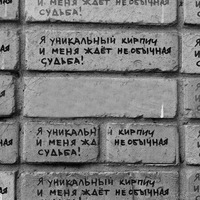 Я УНИКАЛЬНЫЙ КИРПИЧ
И МЕНЯ ЖДЁТ НЕОБЫЧНАЯ
СУДЬБА!
Я УНИКАЛЬНЫЙ КИРПИЧ
И МЕНЯ ЖДЁТ НЕОБЫЧНАЯ
СУДЬБА!
Я УНИКАЛЬН Й КИРПИЧ
И МЕНЯ ЖД НЕОБЫЧНАЯ
СУДЬБА!
Я УНИКАЛЬНЫЙ КИРПИЧ
И МЕНЯ ЖДЁТ НЕОБЫЧНАЯ
СУДЬБА!